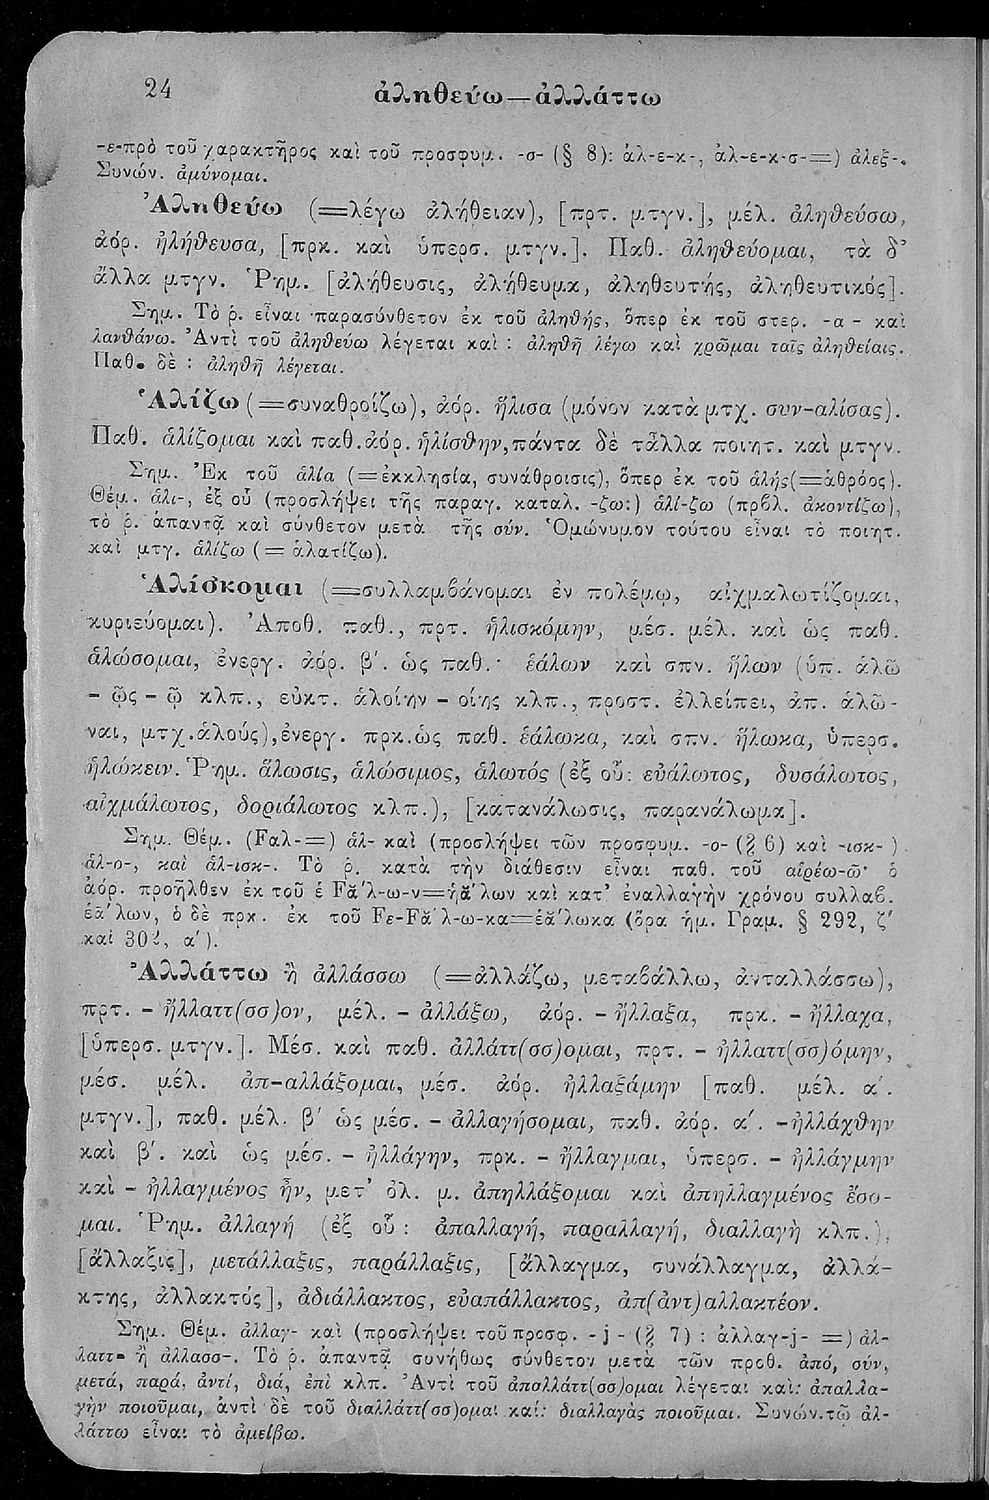 24
ἀληθεύω—ἀλλάττω
-ε-πρὸ τοῦ χαρακτῆρος καὶ τοῦ προσφυμ. -σ- (§ 8): ἀλ-ε-κ-, ἀλ-ε-κ-σ-=) ἀλεξ-.
Συνών. ἀμύνομαι.
Ἀληθεύω (=λέγω ἀλήθειαν), [πρτ. μτγν.], μέλ. ἀληθεύσω,
ἀόρ. ἠλήθευσα, [πρκ. καὶ ὑπερσ. μτγν.]. Παθ. ἀληθεύομαι, τὰ δ'
ἄλλα μτγν. Ῥημ. [ἀλήθευσις, ἀλήθευμα, ἀληθευτής, ἀληθευτικός].
Σημ. Τὸ ῥ. εἶναι παρασύνθετον ἐκ τοῦ ἀληθής, ὅπερ ἐκ τοῦ στερ. -α- καὶ
λανθάνω. Ἀντὶ τοῦ ἀληθεύω λέγεται καὶ : ἀληθῆ λέγω καὶ χρῶμαι ταῖς ἀληθείαις.
Παθ. δὲ : ἀληθῆ λέγεται.
Ἁλίζω (=συναθροίζω), ἀόρ. ἥλισα (μόνον κατὰ μτχ. συν-αλίσας).
Παθ. ἁλίζομαι καὶ παθ.ἀόρ. ἡλίσθην,πάντα δὲ τἆλλα ποιητ. καὶ μτγν.
Σημ. Ἐκ τοῦ ἁλία (=ἐκκλησία, συνάθροισις), ὅπερ ἐκ τοῦ ἁλής(=ἀθρόος).
Θέμ. ἁλι-, ἐξ οὗ (προσλήψει τῆς παραγ. καταλ. -ζω:) ἁλί-ζω (πρβλ. ἀκοντίζω),
τὸ ῥ. ἀπαντᾷ καὶ σύνθετον μετὰ τῆς σύν. Ὁμώνυμον τούτου εἶναι τὸ ποιητ.
καὶ μτγ. ἁλίζω (= ἁλατίζω).
Ἁλίσκομαι (=συλλαμβάνομαι ἐν πολέμῳ, αἰχμαλωτίζομαι,
κυριεύομαι). Ἀποθ. παθ., πρτ. ἡλισκόμην, μέσ. μέλ. καὶ ὡς παθ.
ἁλώσομαι, ἐνεργ. ἀόρ. β'. ὡς παθ.· ἑάλων καὶ σπν. ἥλων (ὑπ. ἁλῶ
- ῷς - ῷ κλπ., εὐκτ. ἁλοίην - οίης κλπ., προστ. ἐλλείπει, ἀπ. ἁλῶ-
ναι, μτχ.ἁλούς),ἐνεργ. πρκ.ὡς παθ. ἑάλωκα, καὶ σπν. ἥλωκα, ὑπερσ.
ἡλώκειν. Ῥημ. ἅλωσις, ἁλώσιμος, ἁλωτός (ἐξ οὗ: εὐάλωτος, δυσάλωτος,
αἰχμάλωτος, δοριάλωτος κλπ.), [κατανάλωσις, παρανάλωμα].
Σημ. Θέμ. (Fαλ-=) ἁλ- καὶ (προσλήψει τῶν προσφυμ. -ο- (§ 6) καὶ -ισκ- )
ἁλ-ο-, καὶ ἁλ-ισκ-. Τὸ ῥ. κατὰ τὴν διάθεσιν εἶναι παθ. τοῦ αἱρέω-ῶ· ὁ
ἀόρ. προῆλθεν ἐκ τοῦ ἐ Fᾰ'λ-ω-ν=ἡᾰ'λων καὶ κατ' ἐναλλαγὴν χρόνου συλλαβ.
ἑᾱ'λων, ὁ δὲ πρκ. ἐκ τοῦ Fε-Fᾰ'λ-ω-κα=ἑᾱ'λωκα (ὅρα ἡμ. Γραμ. § 292, ζ'
καὶ 302, α').
Ἀλλάττω ἢ ἀλλάσσω (=ἀλλάζω, μεταβάλλω, ἀνταλλάσσω),
πρτ. - ἤλλαττ(σσ)ον, μέλ. - ἀλλάξω, ἀόρ. - ἤλλαξα, πρκ. - ἤλλαχα,
[ὑπερσ. μτγν.]. Μέσ. καὶ παθ. ἀλλάττ(σσ)ομαι, πρτ. - ἠλλαττ(σσ)όμην,
μέσ. μέλ. ἀπ-αλλάξομαι, μέσ. ἀόρ. ἠλλαξάμην [παθ. μέλ. α'.
μτγν.], παθ. μέλ. β' ὡς μέσ. - ἀλλαγήσομαι, παθ. ἀόρ. α'. -ἠλλάχθην
καὶ β'. καὶ ὡς μέσ. - ἠλλάγην, πρκ. - ἤλλαγμαι, ὑπερσ. - ἠλλάγμην
καὶ - ἠλλαγμένος ἦν, μετ' ὀλ. μ. ἀπηλλάξομαι καὶ ἀπηλλαγμένος ἔσο-
μαι. Ῥημ. ἀλλαγή (ἐξ οὗ : ἀπαλλαγή, παραλλαγή, διαλλαγὴ κλπ.),
[ἄλλαξις], μετάλλαξις, παράλλαξις, [ἄλλαγμα, συνάλλαγμα, ἀλλά-
κτης, ἀλλακτός], ἀδιάλλακτος, εὐαπάλλακτος, ἀπ(ἀντ)αλλακτέον.
Σημ. Θέμ. ἀλλαγ- καὶ (προσλήψει τοῦ προσφ. - j - (§ 7) : ἀλλαγ-j- =) ἀλ-
λαττ- ἢ ἀλλασσ-. Τὸ ῥ. ἀπαντᾷ συνήθως σύνθετον μετὰ τῶν προθ. ἀπό, σύν,
μετά, παρά, ἀντί, διά, ἐπὶ κλπ. Ἀντὶ τοῦ ἀπαλλάττ(σσ)ομαι λέγεται καὶ: ἀπαλλα-
γὴν ποιοῦμαι, ἀντὶ δὲ τοῦ διαλλάττ(σσ)ομαι καί: διαλλαγὰς ποιοῦμαι. Συνών.τῷ ἀλ-
λάττω εἶναι τὸ ἀμείβω.